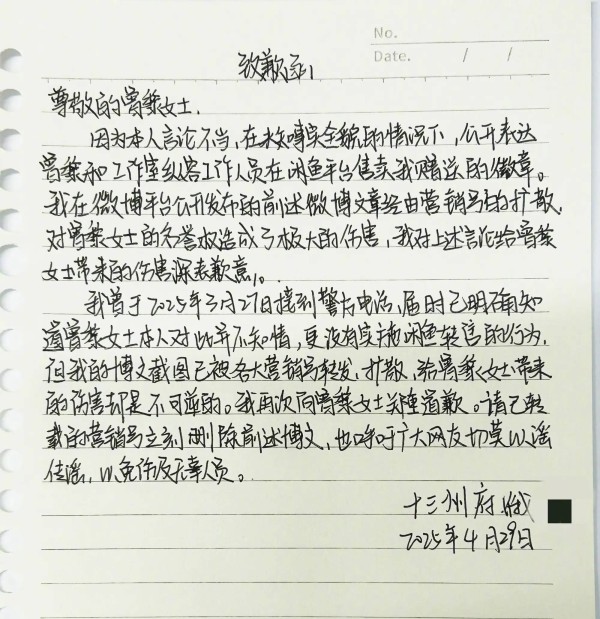 No.
Date. / /
致歉函
尊敬的曾黎女士.
因为本人言论不当,在未核实全貌的情况下,公开表达
曾黎和工作室纵容工作人员在闲鱼平台售卖我赠送的徽章。
我在微博平台公开发布的前述微博文章经由营销号的扩散,
对曾黎女士的名誉权造成了极大的伤害,我对上述言论给曾黎
女士带来的伤害深表歉意。
我曾于2025年3月27日接到警方电话,届时已明确知
道曾黎女士本人对此并不知情,更没有实施闲鱼转售的行为,
但我的博文截图已被各大营销号转发,扩散,给曾黎女士带来
的伤害却是不可逆的。我再次向曾黎女士郑重道歉。请已转
载的营销号立刻删除前述博文,也呼吁广大网友切莫以谣
传谣,以免伤及无辜人员。
十三州府
2025年4月29日